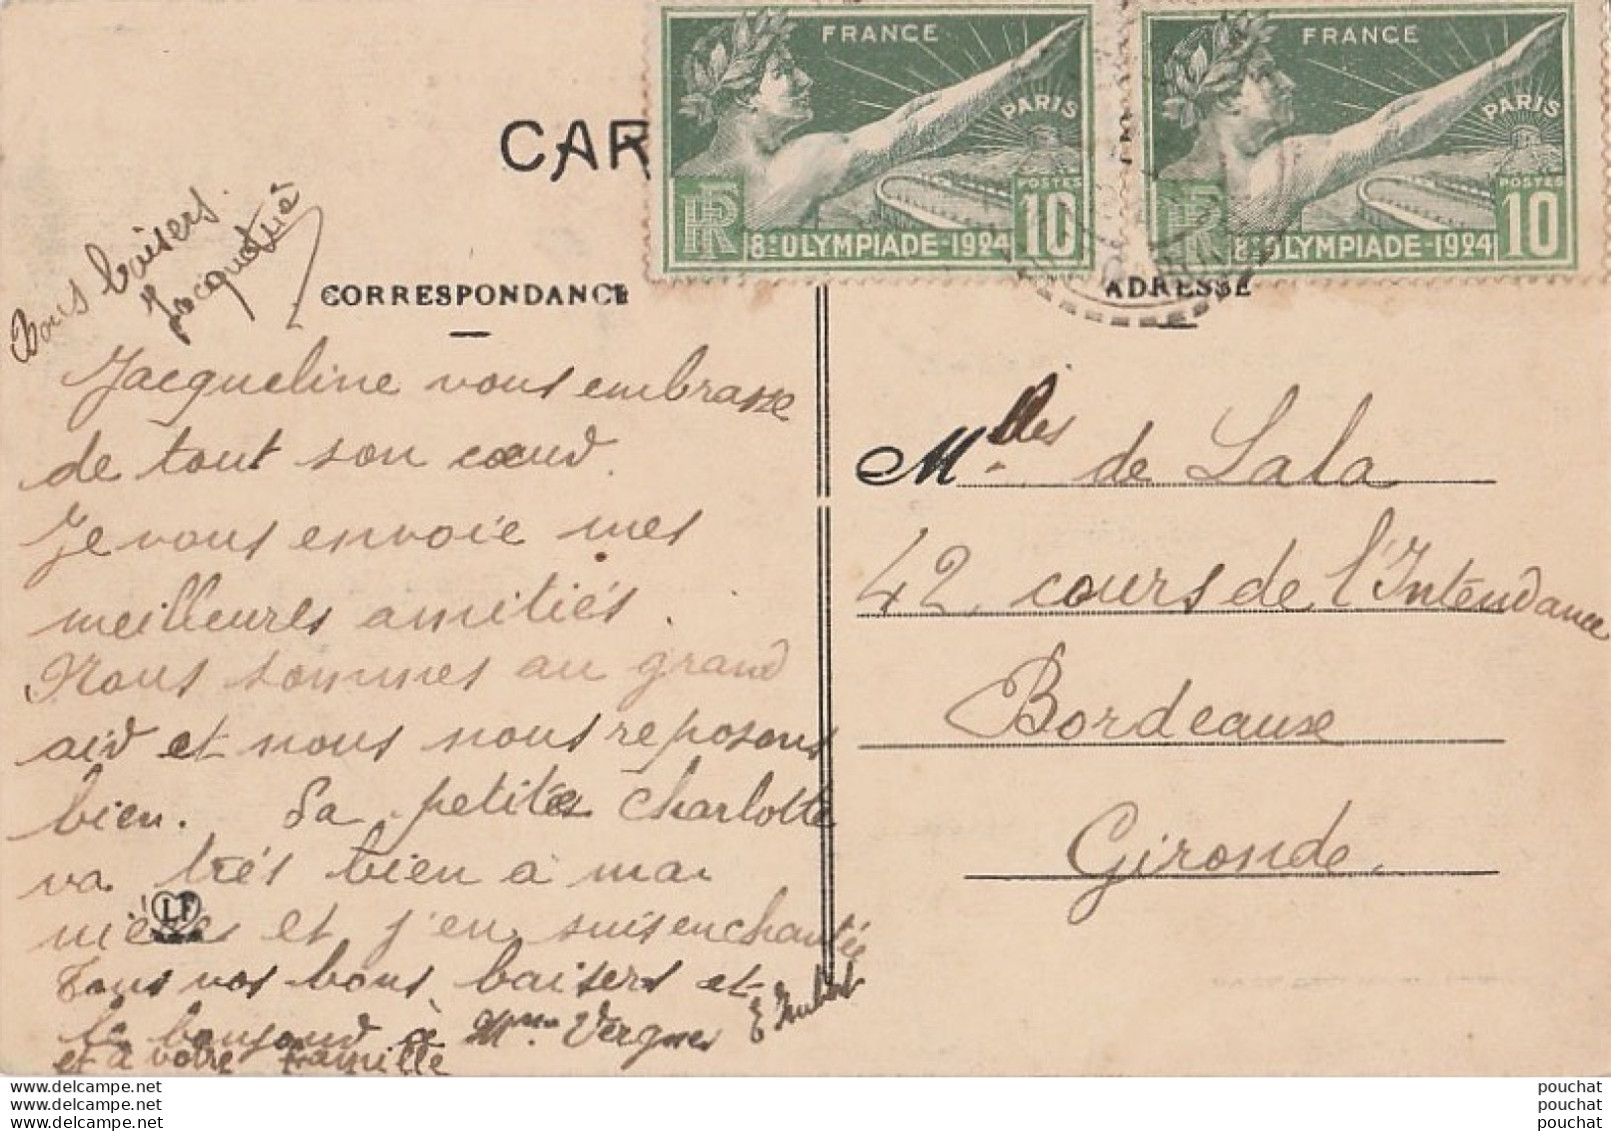 FRANCE
PARIS
RF
POSTES
8e OLYMPIADE-1924
10
FRANCE
PARIS
RF
POSTES
8e OLYMPIADE-1924
10
CAR
Bons baisers.
Jacquotte
CORRESPONDANCE
ADRESSE
Jacqueline vous embrasse
de tout son cœur.
Je vous envoie mes
meilleures amitiés.
Nous sommes au grand
air et nous nous reposons
bien. La petites Charlotte
va très bien à ma
et j'en suis enchantée
LF
Tous nos bons baisers et
le bonjour à Mme Vergnes
et à votre famille
Mlles de Lala
42 cours de l'Intendance
Bordeaux
Gironde.
delcampe.net
delcampe.net
delcampe.net
pouchat
pouchat
pouchat